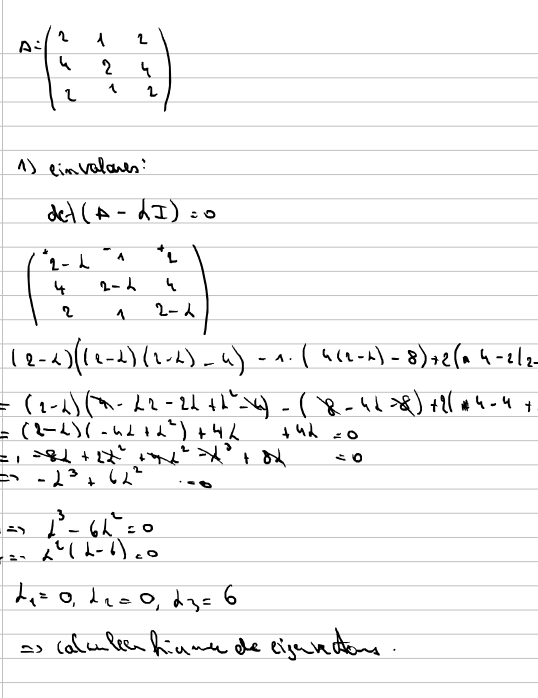 A = ( 2 1 2
4 2 4
2 1 2 )
1) einvalares:
det(A - λI) = 0
( 2-λ 1 2
4 2-λ 4
2 1 2-λ )
(2-λ)((2-λ)(2-λ) - 4) - 1·(4(2-λ) - 8) + 2(4 - 2(2-
= (2-λ)(4 - λ2 - 2λ + λ² - 4) - (8 - 4λ - 8) + 2(4 - 4 +
= (2-λ)(-4λ + λ²) + 4λ + 4λ = 0
= -8λ + 2λ² + 4λ² - λ³ + 8λ = 0
=> -λ³ + 6λ² = 0
=> λ³ - 6λ² = 0
=> λ²(λ-6) = 0
λ₁ = 0, λ₂ = 0, λ₃ = 6
=> de